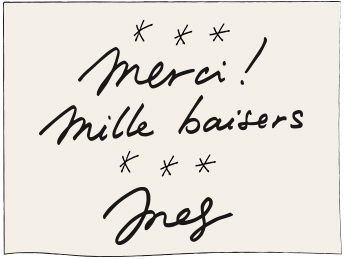 * * *
Merci !
Mille baisers
* * *
Ines